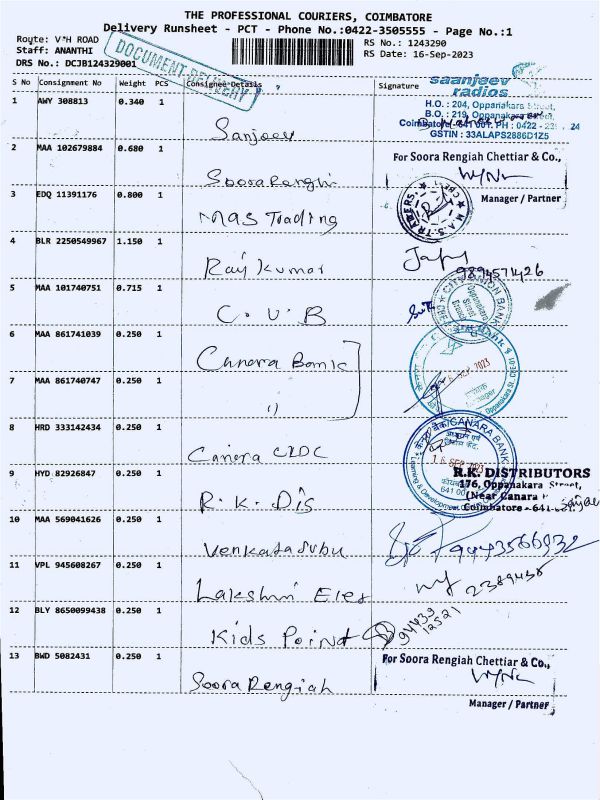 THE PROFESSIONAL COURIERS, COIMBATORE
Delivery Runsheet - PCT - Phone No.:0422-3505555 - Page No.:1
Route: V*H ROAD
Staff: ANANTHI
DRS No.: DCJB124329001
DOCUMENT DELIVERY
RS No.: 1243290
RS Date: 16-Sep-2023
S No Consignment No Weight PCS Consignee Details Signature
1 AWY 308813 0.340 1 Sanjeev
saanjeev
radios
H.O.: 204, Oppanakara Street,
B.O.: 219, Oppanakara Street
Coimbatore - 641 001. PH : 0422 - 24
GSTIN : 33ALAPS2886D1Z5
2 MAA 102679884 0.680 1 Soora Renghi
For Soora Rengiah Chettiar & Co.,
Manager / Partner
3 EDQ 11391176 0.800 1 Mas Trading
M.A.S. TRADERS
4 BLR 2250549967 1.150 1 Raj Kumar
9894571426
5 MAA 101740751 0.715 1 C. U. B
CITY UNION BANK
Oppanakara
Street
6 MAA 861741039 0.250 1 Canara Bank
7 MAA 861740747 0.250 1 "
SEP 2023
Oppanakara St.
8 HRD 333142434 0.250 1 Canera CRDC
CANARA BANK
16 SEP 2023
Learning & Development
9 HYD 82926847 0.250 1 R. K. Dis
R.K. DISTRIBUTORS
176, Oppanakara Street,
(Near Canara
Coimbatore - 641
10 MAA 569041626 0.250 1 Venkatasubu
9443566932
11 VPL 945608267 0.250 1 Lakshmi Eles
2389438
12 BLY 8650099438 0.250 1 Kids Point
94439
12521
13 BWD 5082431 0.250 1 Soora Rengiah
For Soora Rengiah Chettiar & Co.,
Manager / Partner